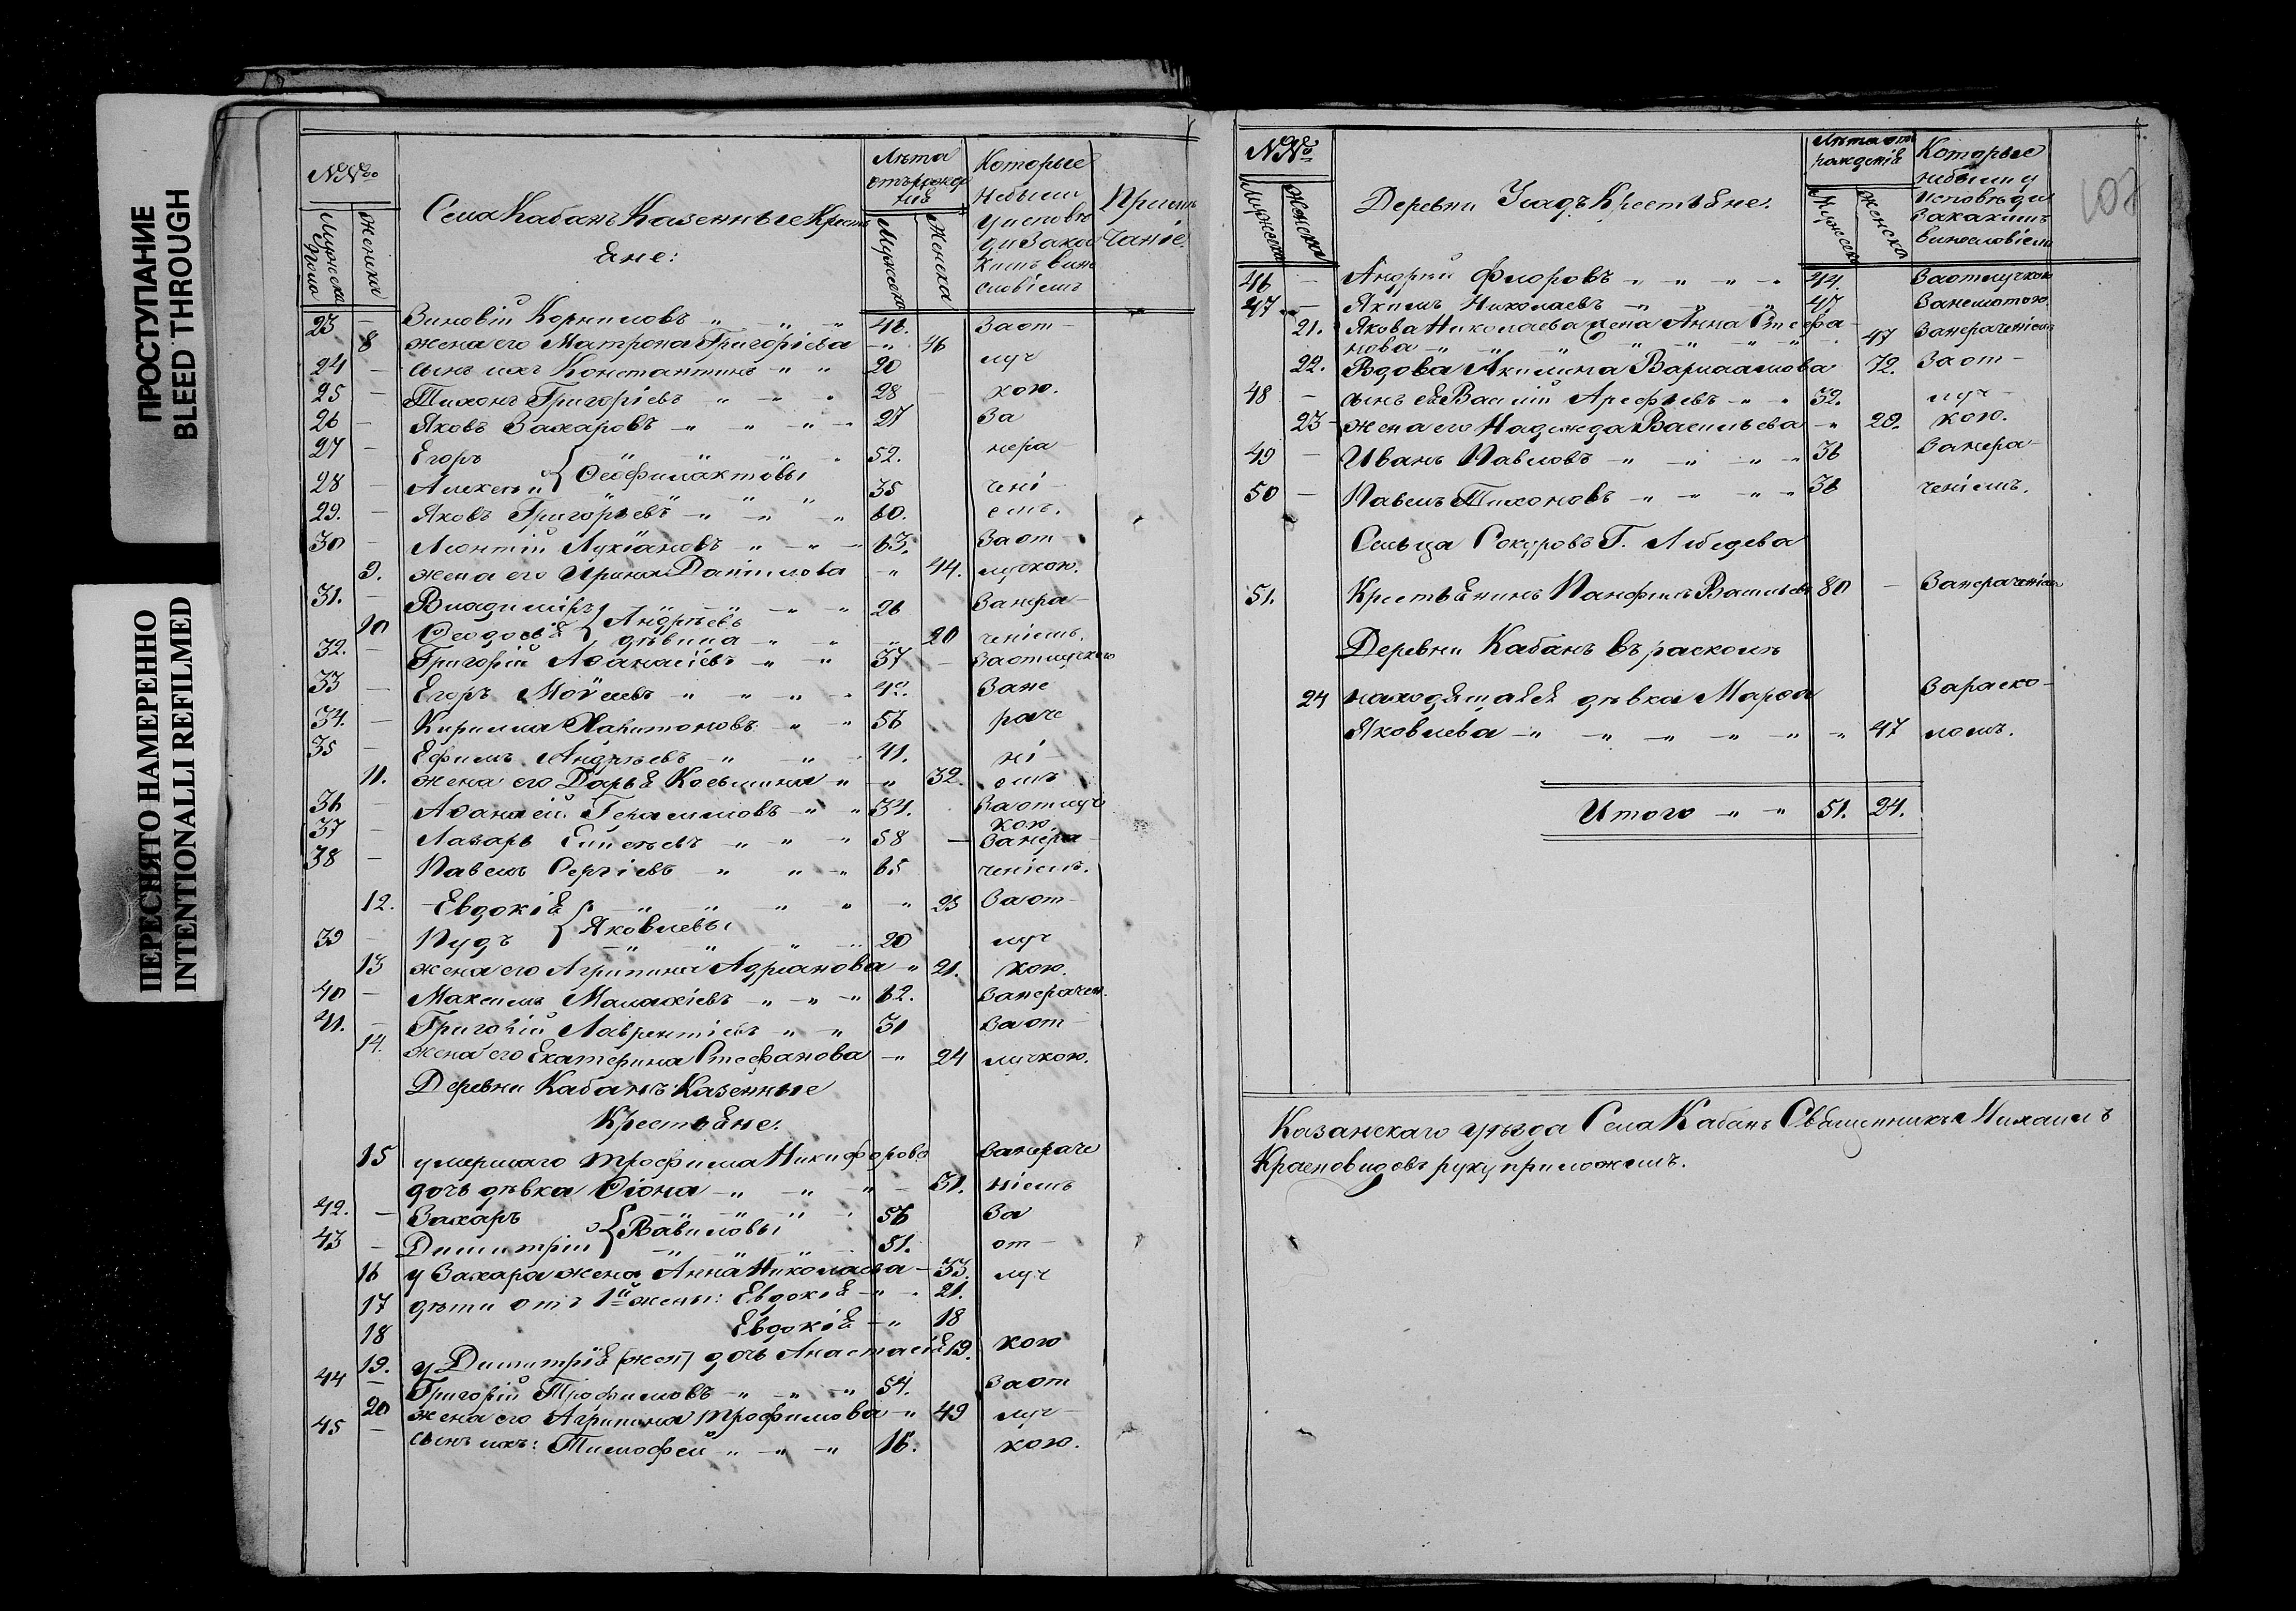 ПРОСТУПАНИЕ
BLEED THROUGH
ПЕРЕСНЯТО НАМЕРЕННО
INTENTIONALLI REFILMED
№№
Мужеска пола
Женска
Села Кабанъ Казенные Кресть
яне:
Лѣта отъ рожде нія
Мужеска
Женска
Которые небыли у исповѣ ди за ка кимъ вино словіемъ
Примѣ чаніе.
23 — Зиновій Корниловъ „ „ „ 46. За от-
8 жена его Матрона Григоріева — „ 46
24 — сынъ ихъ Константинъ „ „ 20 луч
25 — Тихонъ Григоріевъ „ „ „ 28 кою.
26 — Яковъ Захаровъ „ „ „ 27 За
27 — Егоръ „ „ „ 52. нера
28 — Алексѣй } Феофилактовы „ „ 35 чені-
29. — Яковъ Григорьевъ „ „ „ 60. емъ.
30 — Леонтій Лукіановъ „ „ „ 63. За от
9. жена его Ирина Даніилова „ 44. лучкою.
31. — Владиміръ „ „ „ 26 За нера-
10 Феодосія { Андрѣевы дѣвица „ „ „ 20 ченіемъ.
32. — Григорій Аѳанасіевъ „ „ 37 — За отлучкою
33 — Егоръ Моѵсеевъ „ „ „ 42. За не
34. — Кирилла Харитоновъ „ „ 56 раче
35 — Ефимъ Андрѣевъ „ „ 41. ні
11. жена его Дарья Косьмина „ „ 32. емъ
36 — Аѳанасій Герасимовъ „ „ 34. За отлуч
кою
37 — Лазарь Елисѣевъ „ „ „ 58 — За нера-
38 — Павелъ Сергіевъ „ „ „ 65 ченіемъ.
12. Евдокія „ „ „ „ „ 23 За от-
39 — Пудъ { Яковлевы „ „ 20 луч
13 жена его Агрипина Адріанова „ 21. кою.
40 — Максимъ Малахіевъ „ „ „ 62. За нерачен.
41. — Григорій Лаврентіевъ „ „ 31 За от-
14. жена его Екатерина Стефанова „ 24 лучкою.
Деревни Кабанъ Казенные
Крестьяне.
15 умершаго Трофима Никифорова За нераче
дочь дѣвка Фіона „ „ „ — 31. ніемъ
42. — Захаръ „ „ „ 56 За
43 — Димитрій { Вавиловы „ „ 51. от-
16 у Захара жена Анна Николаева — 33. луч
17 дѣти отъ 1й жены: Евдокія „ „ 21.
18 Евдокія „ 18
19. у Димитрія (жен) дочь Анастасія 19. кою
44 — Григорій Трофимовъ „ „ „ 54. За от
20 жена его Агрипина Трофимова „ 49 луч-
45 — сынъ ихъ: Тимофей „ „ „ 16. кою.
№№
Мужеска
Женска
Деревни Уладъ Крестьяне.
Лѣта отъ рожденія
Мужеска
Женска
Которые небыли у исповѣди за какимъ винословіемъ
107
46 — Андрей Федоровъ „ „ „ „ 44. За отлучкою
47 — Якимъ Николаевъ „ „ „ 47. За немотою.
21. Якова Николаева жена Анна Стефа-
нова „ „ „ „ „ „ 47 За нераченіемъ
22. Вдова Акилина Варлаамова 72. За от-
48 — сынъ ея Василій Арефьевъ „ „ 32. луч
23 — жена его Надежда Васильева „ 20. кою.
49 — Иванъ Павловъ „ „ „ „ 36 За нера-
50 — Павелъ Тихоновъ „ „ „ „ 36 ченіемъ.
Сельца Сокуровъ Г. Лебедева
51. Крестьянинъ Панфилъ Васильевъ 80 — За нераченіемъ
Деревни Кабанъ въ расколѣ
24 находящаяся дѣвка Марѳа За раско-
Яковлева „ „ „ „ „ „ 47 ломъ.
Итого „ „ 51. 24.
Казанскаго уѣзда Села Кабанъ Священникъ Михаилъ
Красновидовъ руку приложилъ.